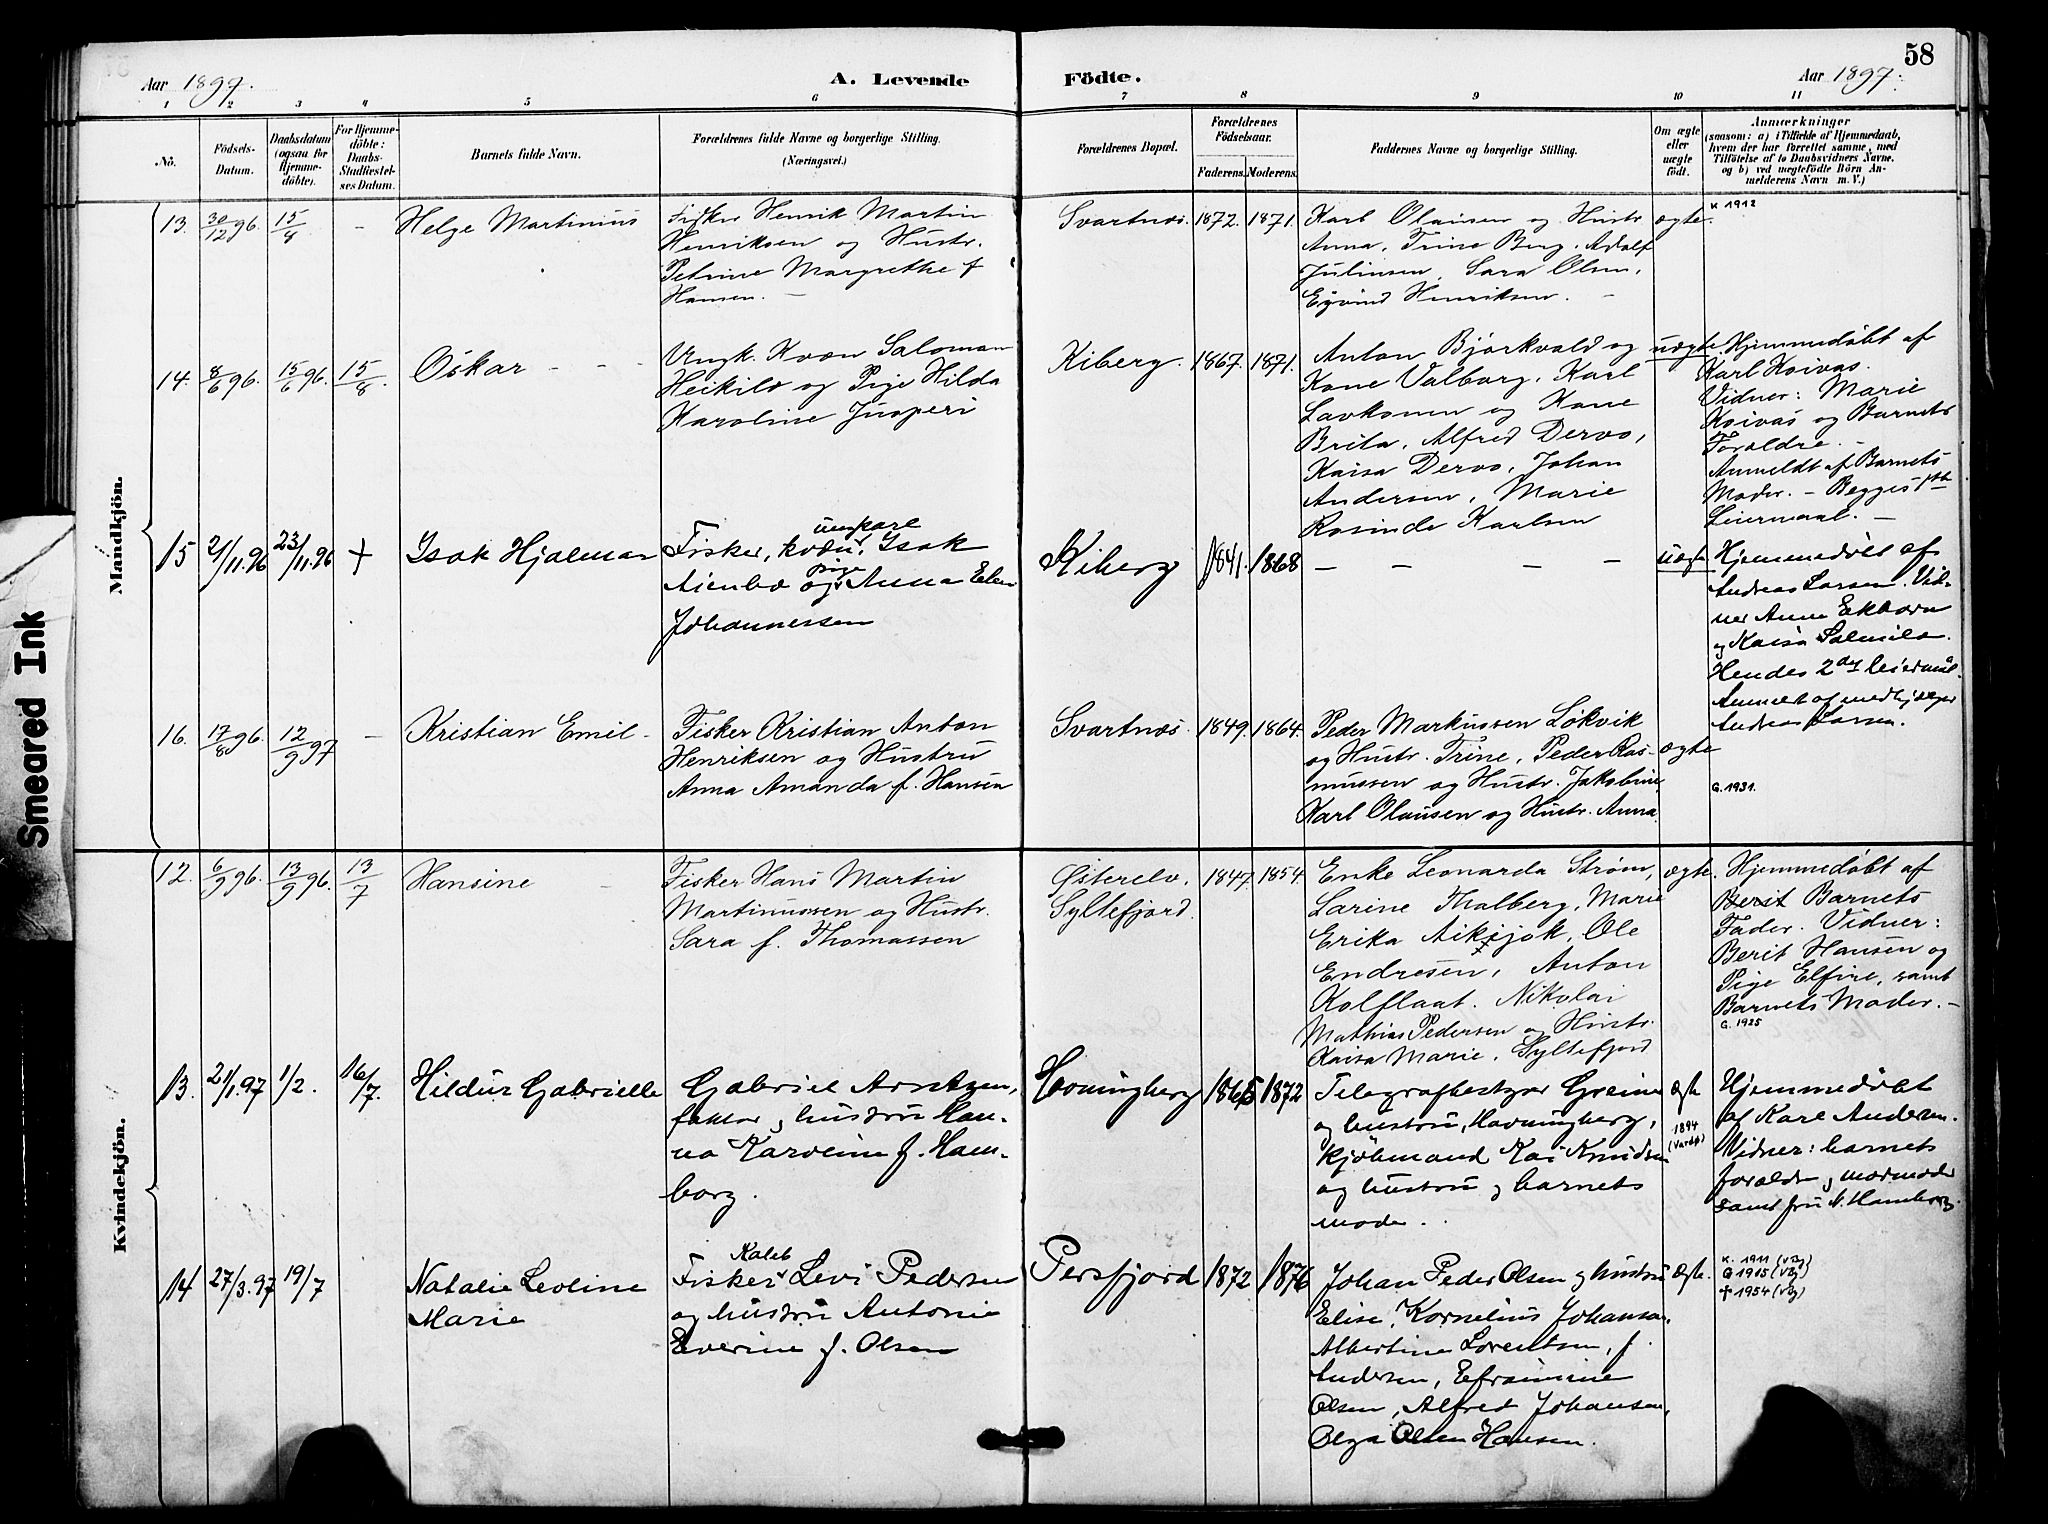 58
Aar 1897.
A. Levende Födte.
Aar 1897.
1 2 3 4 5 6 7 8 9 10 11
No.
Födsels-Datum.
Daabsdatum (ogsaa for Hjemme-döbte).
For Hjemme-döbte: Daabs-Stadfæstel-ses Datum.
Barnets fulde Navn.
Forældrenes fulde Navne og borgerlige Stilling.
(Næringsvei.)
Forældrenes Bopæl.
Forældrenes Födselsaar.
Faderens. Moderens.
Faddernes Navne og borgerlige Stilling.
Om ægte eller uægte födt.
Anmærkninger
(saasom: a) i Tilfælde af Hjemmedaab, hvem der har forrettet samme, med Tilföielse af to Daabsvidners Navne, og b) ved uægtefödte Börn An-melderens Navn m. V.)
Mandkjön.
13. 30/12 96. 15/8 - Helge Martinius
Fisker Henrik Martin
Henriksen og Hustr.
Petrine Margrethe f
Hansen. -
Svartnæs. 1872. 1871.
Karl Olausen og Hustr
Anna, Trine Berg. Adolf
Juliusen, Sara Olsen,
Eyvind Henriksen. -
ægte.
K 1912
14. 8/6 96. 15/6 96. 15/8 Oskar - -
Ungk. Kvæn Saloman
Heikilä og Pige Hilda
Karoline Jusperi
Kiberg. 1867. 1871.
Anton Bjørkvald og
Kone Valborg, Karl
Lavkonen og Kone
Brita, Alfred Dervo,
Kaisa Dervo, Johan
Andersen, Marie
Rosinde Karlsen
uægte
Hjemmedøbt af
Karl Koivas.
Vidner: Marie
Koivas og Barnets
Forældre. -
Anmeldt af Barnets
Moder. - Begges 1ste
Leiermaal. -
15 21/11.96 23/11.96 + Isak Hjalmar
Fisker, kvæn, ungkarl Isak
Aienbo og pige Anna Elen
Johannessen
Kiberg 1841. 1868 - - - -
uægte
Hjemmedøbt af
Andreas Larsen. Vid-
ner Anna Ekhorn
og Kaisa Salmila.
Hendes 2det leiermål.
Anmeldt af medhjælper
Andreas Larsen.
16. 17/8 96. 12/9 97 - Kristian Emil -
Fisker Kristian Anton
Henriksen og Hustru
Anna Amanda f. Hansen
Svartnæs. 1849. 1864.
Peder Markussen Løkvik
og Hustr. Trine, Peder Ras-
mussen og Hustr. Jakobine,
Karl Olausen og Hustr. Anna.
ægte
G. 1931.
Kvindekjön.
12. 6/9 96. 13/9 96. 13/7 Hansine -
Fisker Hans Martin
Martinussen og Hustr.
Sara f. Thomassen
Østerelv. Syltefjord. 1847. 1854.
Enke Leonarda Strøm,
Larine Thalberg, Marie
Erika Aikijok, Ole
Endresen, Anton
Kolflaat. Nikolai
Mathias Pedersen og Hustr.
Kaisa Marie, Syltefjord
ægte.
Hjemmedøbt af
Berit Barnets
Fader. Vidner:
Berit Hansen og
Pige Elfine, samt
Barnets Moder. -
G. 1925
13. 21/1.97 1/2. 16/7. Hildur Gabrielle
Gabriel Arntzen,
faktor, og hustru Han-
na Karoline f. Ham-
borg.
Havningberg 1865 1872
Telegrafbestyrer Greiner
og hustru, Havningberg,
kjøbmand Kai Knudsen
og hustru og barnets
mode.
Ægte
1894
(Vardø)
Hjemmedøbt
af Karl Andersen.
Vidner: barnets
forældre og mormoder
samt fru N. Hamborg
14 27/3.97 19/7 Natalie Leoline
Marie
Fisker Kaleb Levi Pedersen
og hustru Antonie
Everine f. Olsen
Persfjord 1872 1876
Johan Peder Olsen og hustru
Elise, Kornelius Johansen,
Albertine Lorentsen, f.
Andersen, Efraimine
Olsen, Alfred Johansen,
Olga Olsen Hansen.
Ægte.
K. 1911 (vBg)
G 1915 (vBg)
+ 1954 (vBg)
Smeared Ink